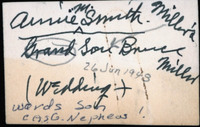 Annie M. Smith. Miller's
Grand Son Bruce
Miller
26 Jan 1998
(Wedding +
words Son
Nephew !